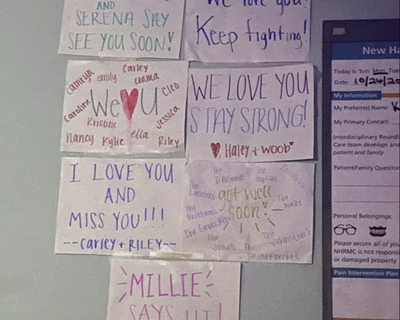 AND
SERENA SAY
SEE YOU SOON!
We love you!
Keep fighting!
Carley
Camryn
emily
emma
Cleo
Caroline
We ♥ U
Jessica
Kristine
Nancy
Kylie
ella
Riley
WE LOVE YOU
STAY STRONG!
♥ Haley + WOOB
I LOVE YOU
AND
MISS YOU!!!
--Carley + RILEY--
get well
soon
MILLIE
SAYS HI!
New Ha
Today is: Sun Mon Tue
Date: 10/24/20
My Information
My Preferred Name: K
My Primary Contact:
Interdisciplinary Round
Care Team develops an
patient and family
Patient/Family Question
Personal Belongings:
Please secure all of yo
NHRMC is not responsi
or damaged property
Pain Intervention Plan